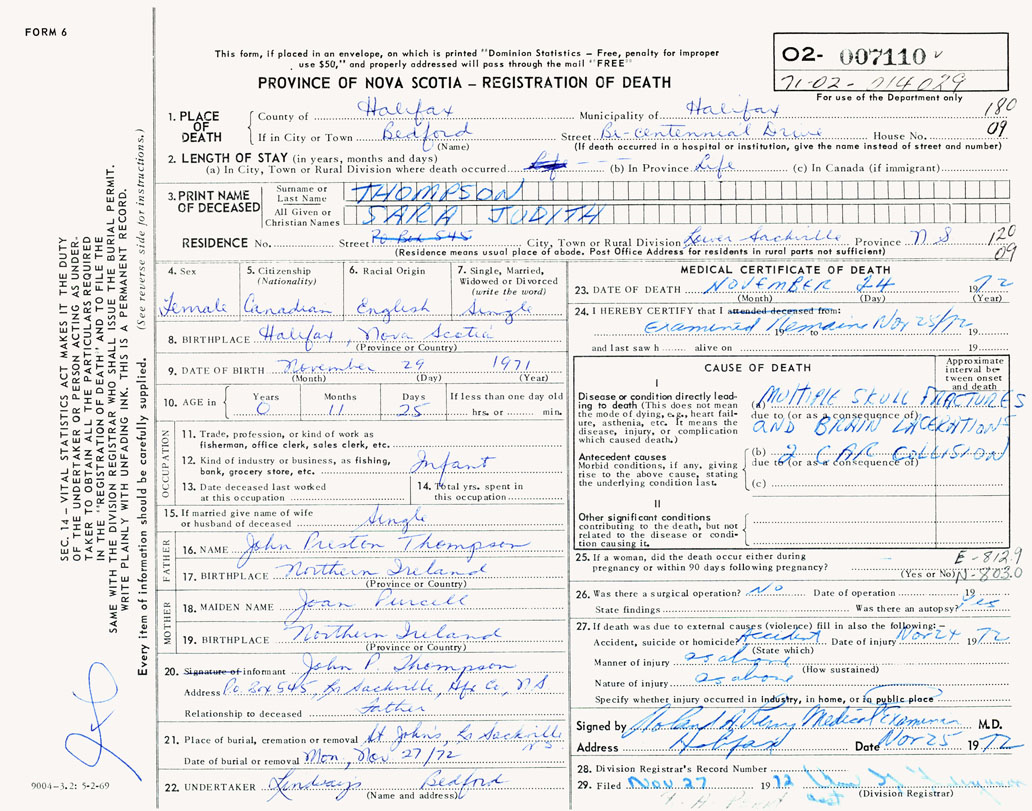 FORM 6
This form, if placed in an envelope, on which is printed "Dominion Statistics – Free, penalty for improper
use $50," and properly addressed will pass through the mail "FREE"
PROVINCE OF NOVA SCOTIA – REGISTRATION OF DEATH
02- 007110
71-02-014029
For use of the Department only
180
09
1. PLACE OF DEATH
County of Halifax Municipality of Halifax
If in City or Town Bedford Street Bi-centennial Drive House No.
(Name) (If death occurred in a hospital or institution, give the name instead of street and number)
2. LENGTH OF STAY (in years, months and days)
(a) In City, Town or Rural Division where death occurred Life (b) In Province Life (c) In Canada (if immigrant)
3. PRINT NAME OF DECEASED
Surname or Last Name THOMPSON
All Given or Christian Names SARA JUDITH
RESIDENCE No. Street Po Box 545 City, Town or Rural Division Lower Sackville Province N S
(Residence means usual place of abode. Post Office Address for residents in rural parts not sufficient)
120
09
4. Sex
Female
5. Citizenship (Nationality)
Canadian
6. Racial Origin
English
7. Single, Married, Widowed or Divorced (write the word)
Single
8. BIRTHPLACE Halifax, Nova Scotia
(Province or Country)
9. DATE OF BIRTH November 29 1971
(Month) (Day) (Year)
10. AGE in
Years Months Days If less than one day old
0 11 25 hrs. or min.
OCCUPATION
11. Trade, profession, or kind of work as fisherman, office clerk, sales clerk, etc.
12. Kind of industry or business, as fishing, bank, grocery store, etc.
Infant
13. Date deceased last worked at this occupation
14. Total yrs. spent in this occupation
15. If married give name of wife or husband of deceased Single
FATHER
16. NAME John Preston Thompson
17. BIRTHPLACE Northern Ireland
(Province or Country)
MOTHER
18. MAIDEN NAME Joan Purcell
19. BIRTHPLACE Northern Ireland
(Province or Country)
20. Signature of informant John P. Thompson
Address P.O. Box 545, Lr Sackville, Hfx Co, N S
Relationship to deceased Father
21. Place of burial, cremation or removal St John's, Lr Sackville N S
Date of burial or removal Mon, Nov 27/72
22. UNDERTAKER Lindsays Bedford
(Name and address)
MEDICAL CERTIFICATE OF DEATH
23. DATE OF DEATH NOVEMBER 24 1972
(Month) (Day) (Year)
24. I HEREBY CERTIFY that I attended deceased from:
Examined Remains Nov 25/72
19 to 19
and last saw h alive on 19
CAUSE OF DEATH
Approximate interval between onset and death
I
Disease or condition directly leading to death (This does not mean the mode of dying, e.g., heart failure, asthenia, etc. It means the disease, injury, or complication which caused death.)
(a) MULTIPLE SKULL FRACTURES
due to (or as a consequence of)
AND BRAIN LACERATIONS
Antecedent causes
Morbid conditions, if any, giving rise to the above cause, stating the underlying condition last.
(b) 2 CAR COLLISION
due to (or as a consequence of)
(c)
II
Other significant conditions contributing to the death, but not related to the disease or condition causing it.
25. If a woman, did the death occur either during pregnancy or within 90 days following pregnancy?
(Yes or No)
E-812.9
N-803.0
26. Was there a surgical operation? No Date of operation 19
State findings Was there an autopsy? Yes
27. If death was due to external causes (violence) fill in also the following:–
Accident, suicide or homicide? Accident Date of injury Nov 24 1972
(State which)
Manner of injury as above
(How sustained)
Nature of injury as above
Specify whether injury occurred in industry, in home, or in public place
Signed by Medical Examiner M.D.
Address Halifax Date Nov 25 1972
28. Division Registrar's Record Number
29. Filed Nov 27 1972
(Division Registrar)
SEC. 14 – VITAL STATISTICS ACT MAKES IT THE DUTY
OF THE UNDERTAKER OR PERSON ACTING AS UNDER-
TAKER TO OBTAIN ALL THE PARTICULARS REQUIRED
IN THE "REGISTRATION OF DEATH" AND TO FILE THE
SAME WITH THE DIVISION REGISTRAR WHO SHALL ISSUE THE BURIAL PERMIT.
WRITE PLAINLY WITH UNFADING INK. THIS IS A PERMANENT RECORD.
Every item of information should be carefully supplied. (See reverse side for instructions.)
9004–3.2: 5-2-69